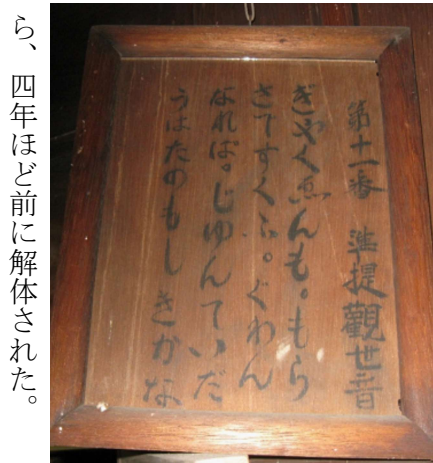 第十一番　準提觀世音
ぎやくゑんも。もら
さですくふ。ぐわん
なれば。じゆんていだ
うはたのもしきかな
ら、四年ほど前に解体された。